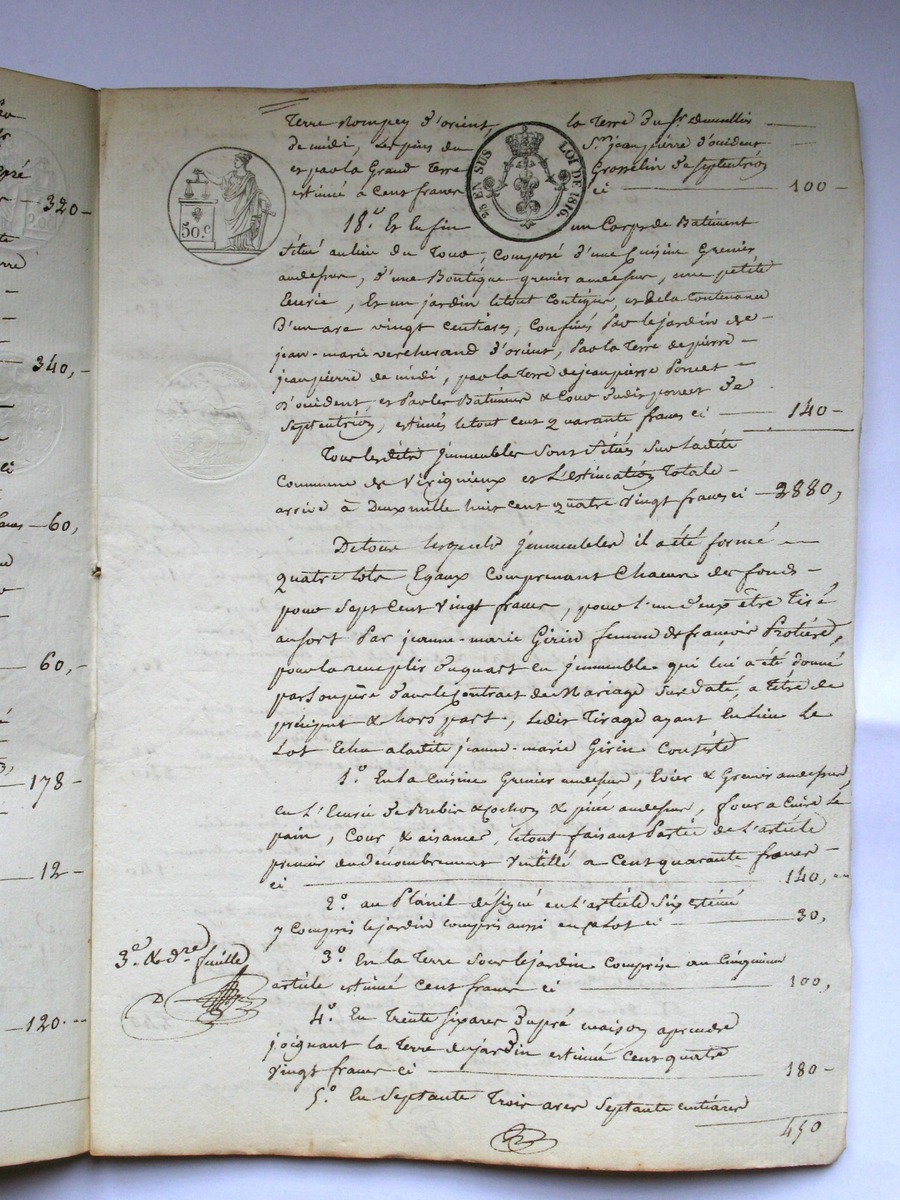 320-
340,-
ci
60,-
60,-
178-
12-
120.--
50.c
EN SUS
LOI DE 1816.
Terre Rompey d'orient la terre du Sr.
de midi, Les pies du Sr. jean pierre d'occident
et par la Grand Terre Grosselin de septentrion
estimé a Cent francs ci 100-
18.° Et En fin un Corps de Batiment
situé au lieu du composé d'une Cuisine Grenier
audessus, d'une Boutique grenier audessus, une petite
Eurie, Et un jardin letout Contigüe, et de la Contenance
D'un are vingt centiares, Confinés Par le jardin de
jean-marie vercherand d'orient, Par la Terre de pierre-
jeanpierre de midi, par la Terre de jeanpierre Poncet
D'occident, et Par les Batimens & Cour dudit poncet de
Septentrion, estimés letout Cent quarante francs ci 140-
Tous lesdits jmmeubles sont situés sur ladite
Commune de Virignieux et L'estimation Totale
arrive à Deux mille huit cent quatre vingt francs ci 2880,
De tous lesquels jmmeubles il a été formé
quatre lots Egaux Comprenant Chacun des fonds
pour sept Cent vingt francs, pour l'un d'eux être Tiré
au sort Par jeanne-marie Girin femme de francois Protière,
pour la remplir du quart en jmmeuble qui lui a été donné
par son père dans le Contract de Mariage sus daté, a titre de
préciput & hors part, Ledit Tirage ayant Eu Lieu Le
Lot Echu a ladite jeanne-marie Girin Consiste
1.° En la Cuisine Grenier audessus, Evier & Grenier audessus
en L'Eurie de Brebis & Cochon & piece audessus, four a Cuire Le
pain, Cour & aisances, letout faisant Partie de L'article
premier du dénombrement Vintillé a Cent quarante francs
ci 140,--
2.° au Planil désigné en L'article Six Estimé
y Compris le jardin Compris aussi en ce Lot ci 30,
3.° En la Terre sous le jardin Comprise au Cinquieme
article estimée cent francs ci 100,
4.° En Trente six ares du pré maison a prendre
joignant la Terre du jardin estimé Cent quatre
vingt francs ci 180-
5.° En Septante Trois ares Septante centiares
450
3.e & dre. feuille